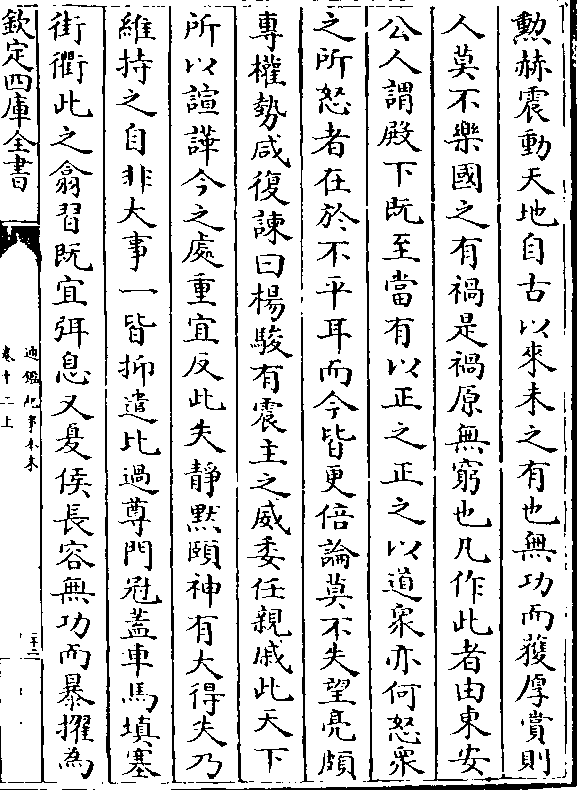 勲赫震動天地自古以來未之有也無功而獲厚賞則
人莫不樂國之有禍是禍原無窮也凡作此者由東安
公人謂殿下既至當有以正之正之以道衆亦何怒衆
之所怒者在於不平耳而今皆更倍論莫不失望亮頗
專權勢咸復諫曰楊駿有震主之威委任親戚此天下
所以諠譁今之處重宜反此失靜黙頤神有大得失乃
維持之自非大事一皆抑遣比過尊門冠蓋車馬填塞
街衢此之翕習既宜弭息又夏侯長容無功而暴擢為
欽定四庫全書
通鑑紀事本末
卷十二上